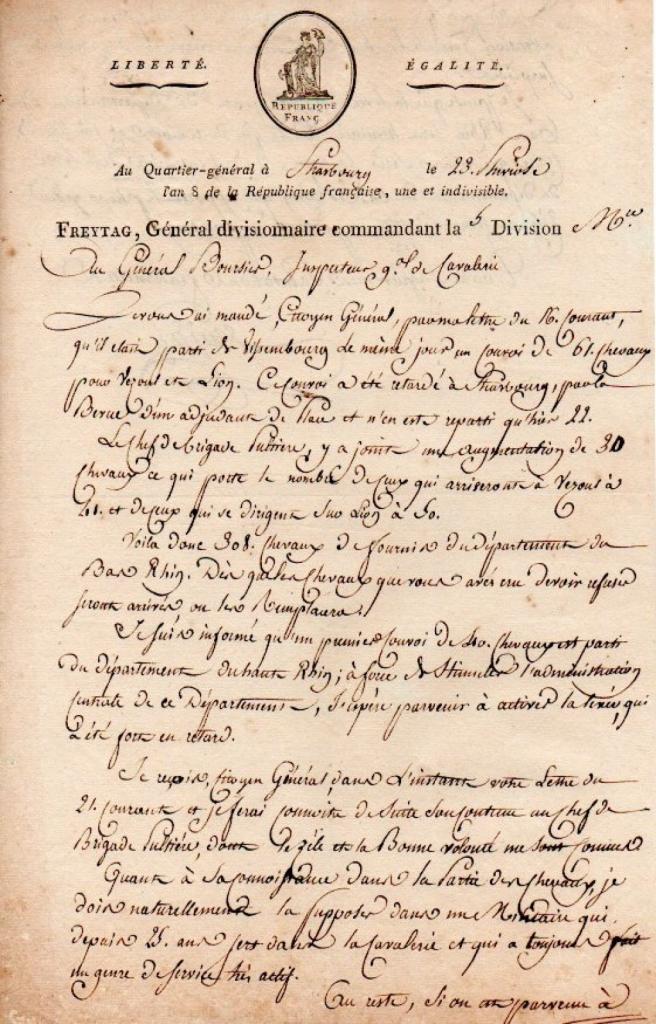 LIBERTÉ. ÉGALITÉ.
REPUBLIQUE
FRANÇ.
Au Quartier-général à Strasbourg le 23. Pluviose
l'an 8 de la République française, une et indivisible.
FREYTAG, Général divisionnaire commandant la 5 Division Mre
Au Général Boursier, Inspecteur gal de Cavalerie
Je vous ai mandé, Citoyen Général, par ma lettre du 16. Courant,
qu'il etait parti de Vissembourg le même jour un convoi de 61. chevaux
pour Vezoul et Lion. Ce convoi a été retardé à Strasbourg, par la
d'un adjudant de Place et n'en est reparti qu'hier 22.
Le Chef de brigade y a joint une augmentation de 30
Chevaux ce qui porte le nombre de Ceux qui arriveront à Vezoul à
41. et de Ceux qui se dirigent sur Lion à 50.
Voila donc 308. Chevaux de fournis du département du
Bas Rhin. Dès que les Chevaux que vous avés cru devoir refuser
seront arrivés on les Remplacera.
Je suis informé qu'un premier Convoi de 40. chevaux est parti
du département du haut Rhin; à force de Stimuler l'administration
Centrale de ce Département, J'espère parvenir à activer la levée, qui
a été fort en retard.
Je reçois, Citoyen Général, dans L'instant votre Lettre du
21. Courant et je ferai connoitre de suite son contenu au Chef de
Brigade dont le zèle et la Bonne volonté me sont Connus
Quant à sa connoissance dans la Partie des Chevaux, je
dois naturellement la supposer dans un Militaire qui
depuis 25. ans sert dans la Cavalerie et qui a toujours fait
un genre de service très actif.
Au reste, si on est parvenu à